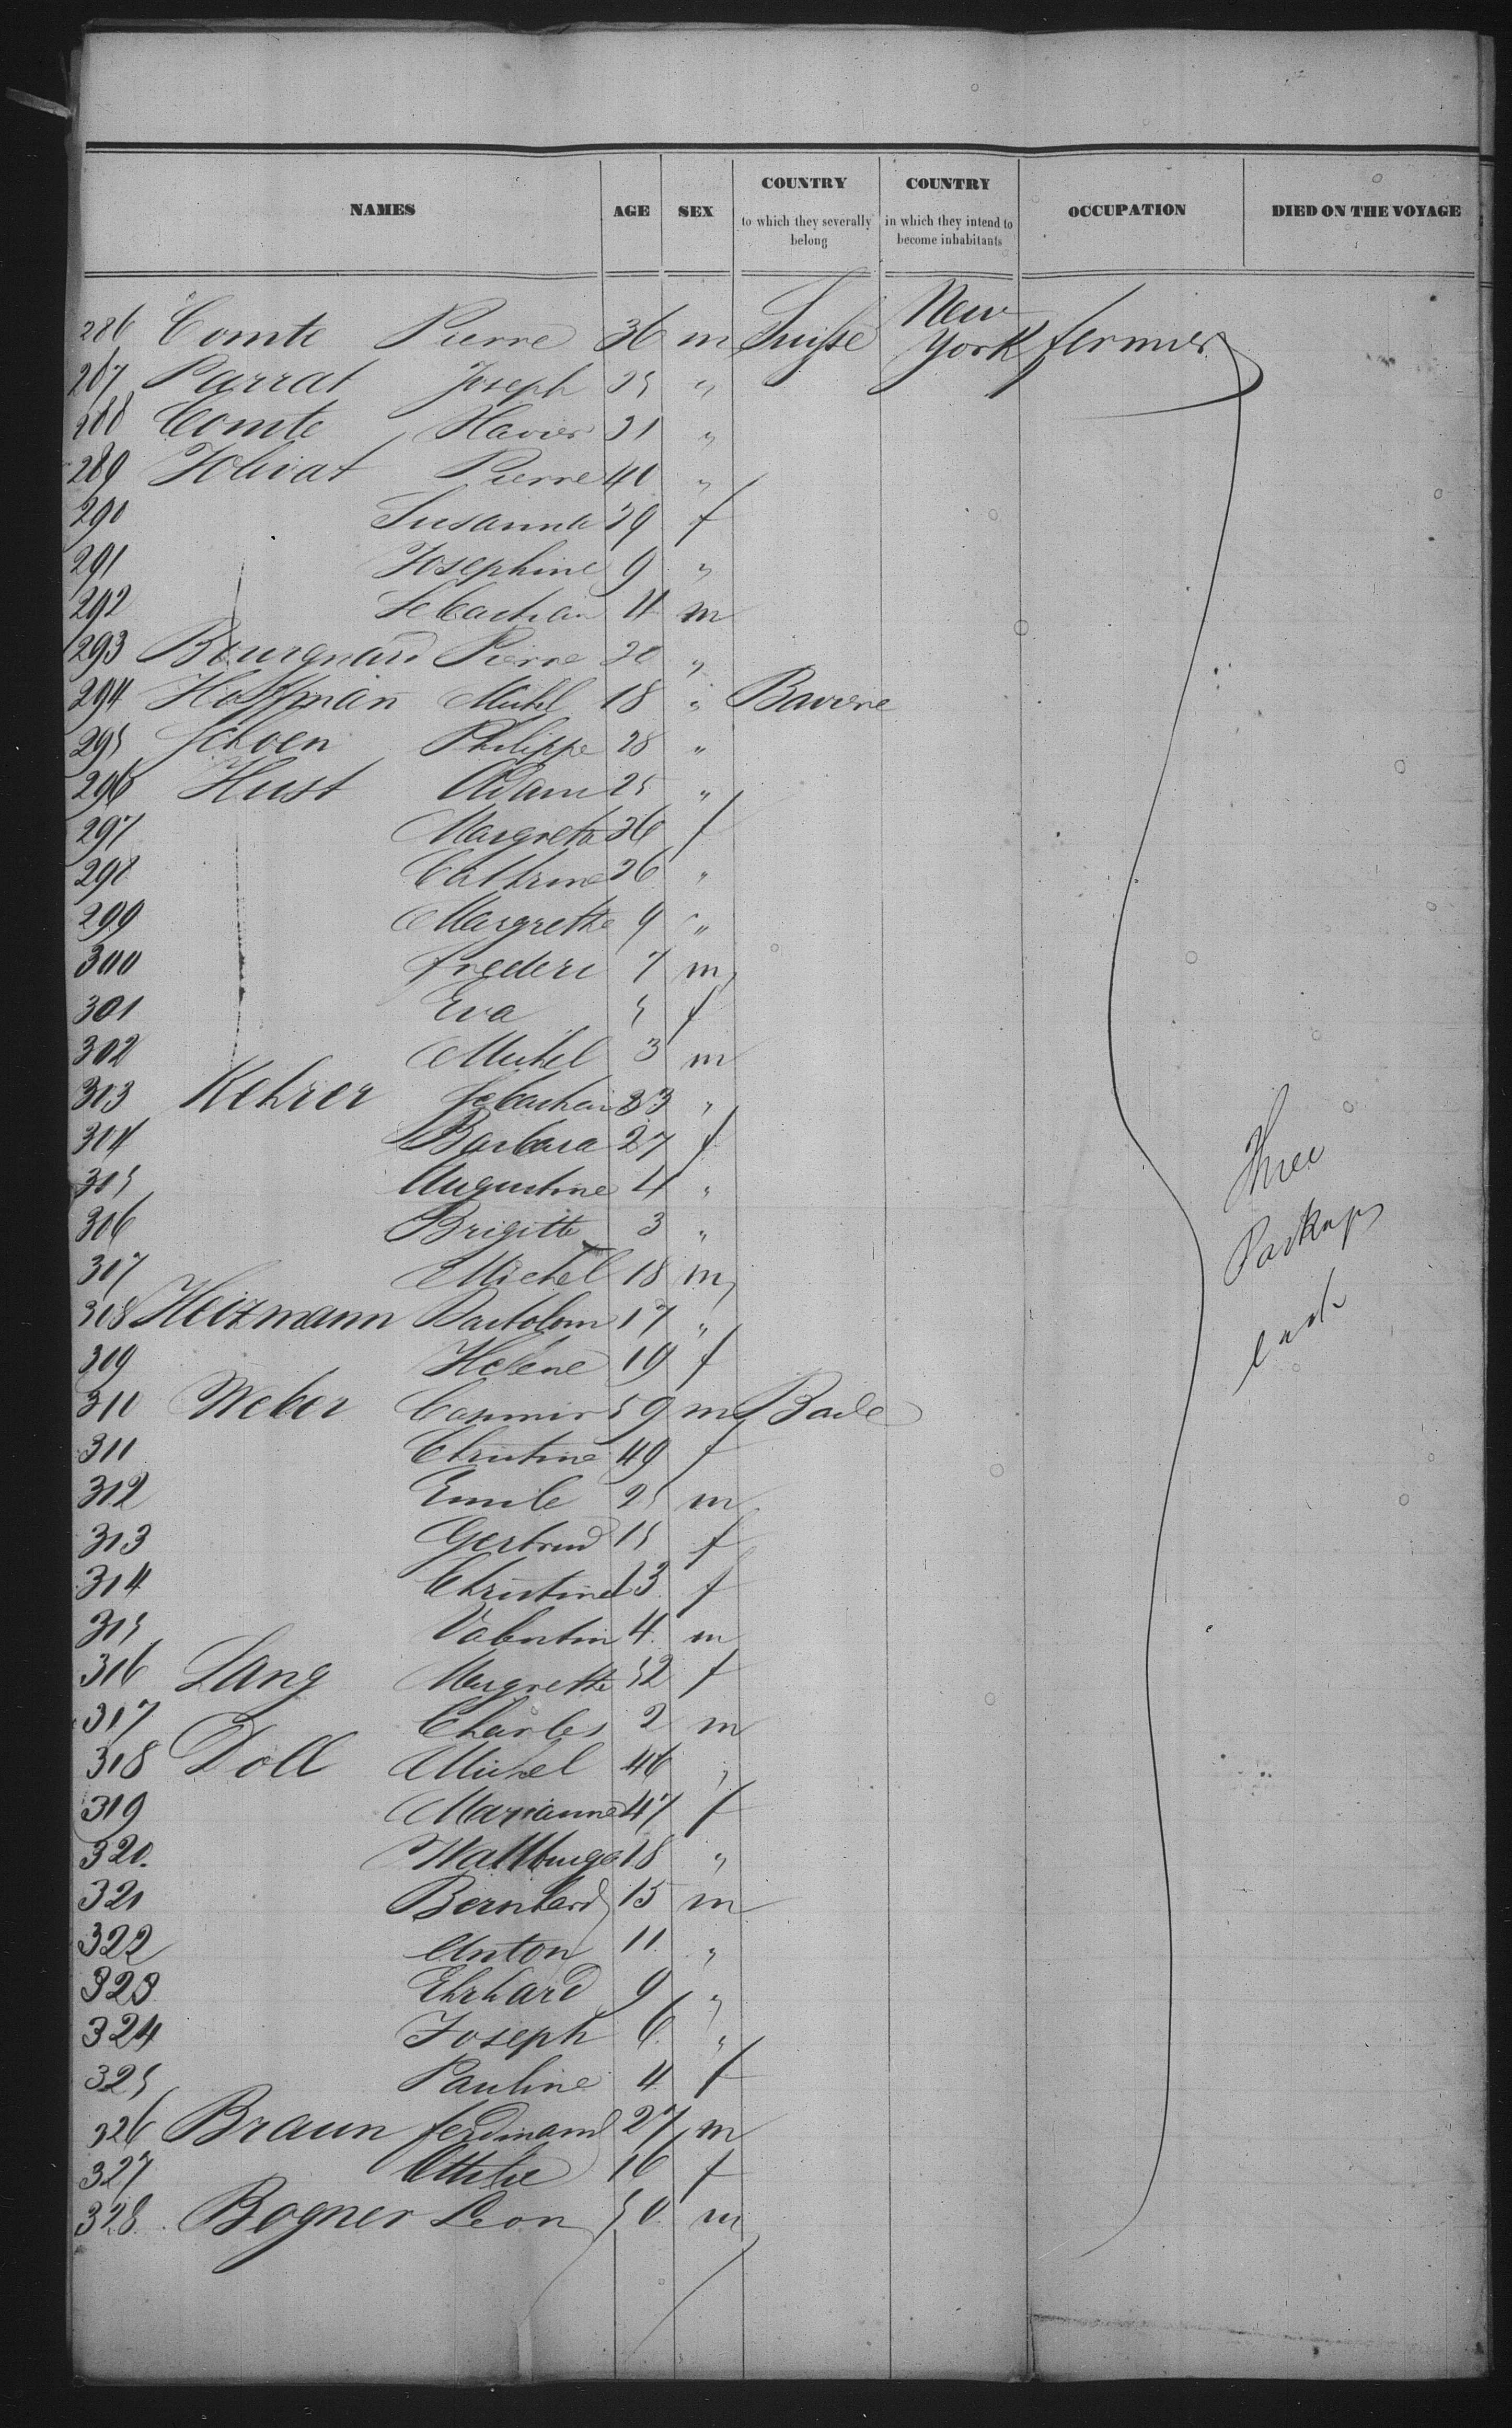 NAMES AGE SEX COUNTRY to which they severally belong COUNTRY in which they intend to become inhabitants OCCUPATION DIED ON THE VOYAGE
286 Comte Pierre 36 m Suisse New York fermier
287 Parrat Joseph 25 "
288 Comte Xavier 31 "
289 Joliat Pierre 40 "
290 Susanna 39 f
291 Josephine 9 "
292 Sebastian 4 m
293 Bourgnard Pierre 20 "
294 Hoffman Michl 18 " Baviere
295 Schoen Philippe 28 "
296 Hust Adam 25 "
297 Margreta 36 f
298 Cathrine 26 "
299 Margrethe 9 "
300 frederic 7 m
301 Eva 5 f
302 Michel 3 m
303 Kehrer Sebastian 33 "
304 Barbara 27 f
305 Augustine 4 "
306 Brigitte 3 "
307 Michel 18 m
308 Heizmann Bartolom 17 "
309 Helene 19 f
310 Weber Casimir 59 m Bade
311 Christine 49 f
312 Emile 25 m
313 Gertrud 15 f
314 Christine 13 f
315 Valentin 4 m
316 Lang Margrethe 52 f
317 Charles 2 m
318 Doll Michel 46 "
319 Marianne 47 f
320. Wallburga 18 "
321 Bernhard 15 m
322 Anton 11 "
323 Ehrhard 9 "
324 Joseph 6 "
325 Pauline 4 f
326 Braun ferdinand 27 m
327 Ottilie 16 f
328. Bogner Leon 50 m
Three
Packages
each